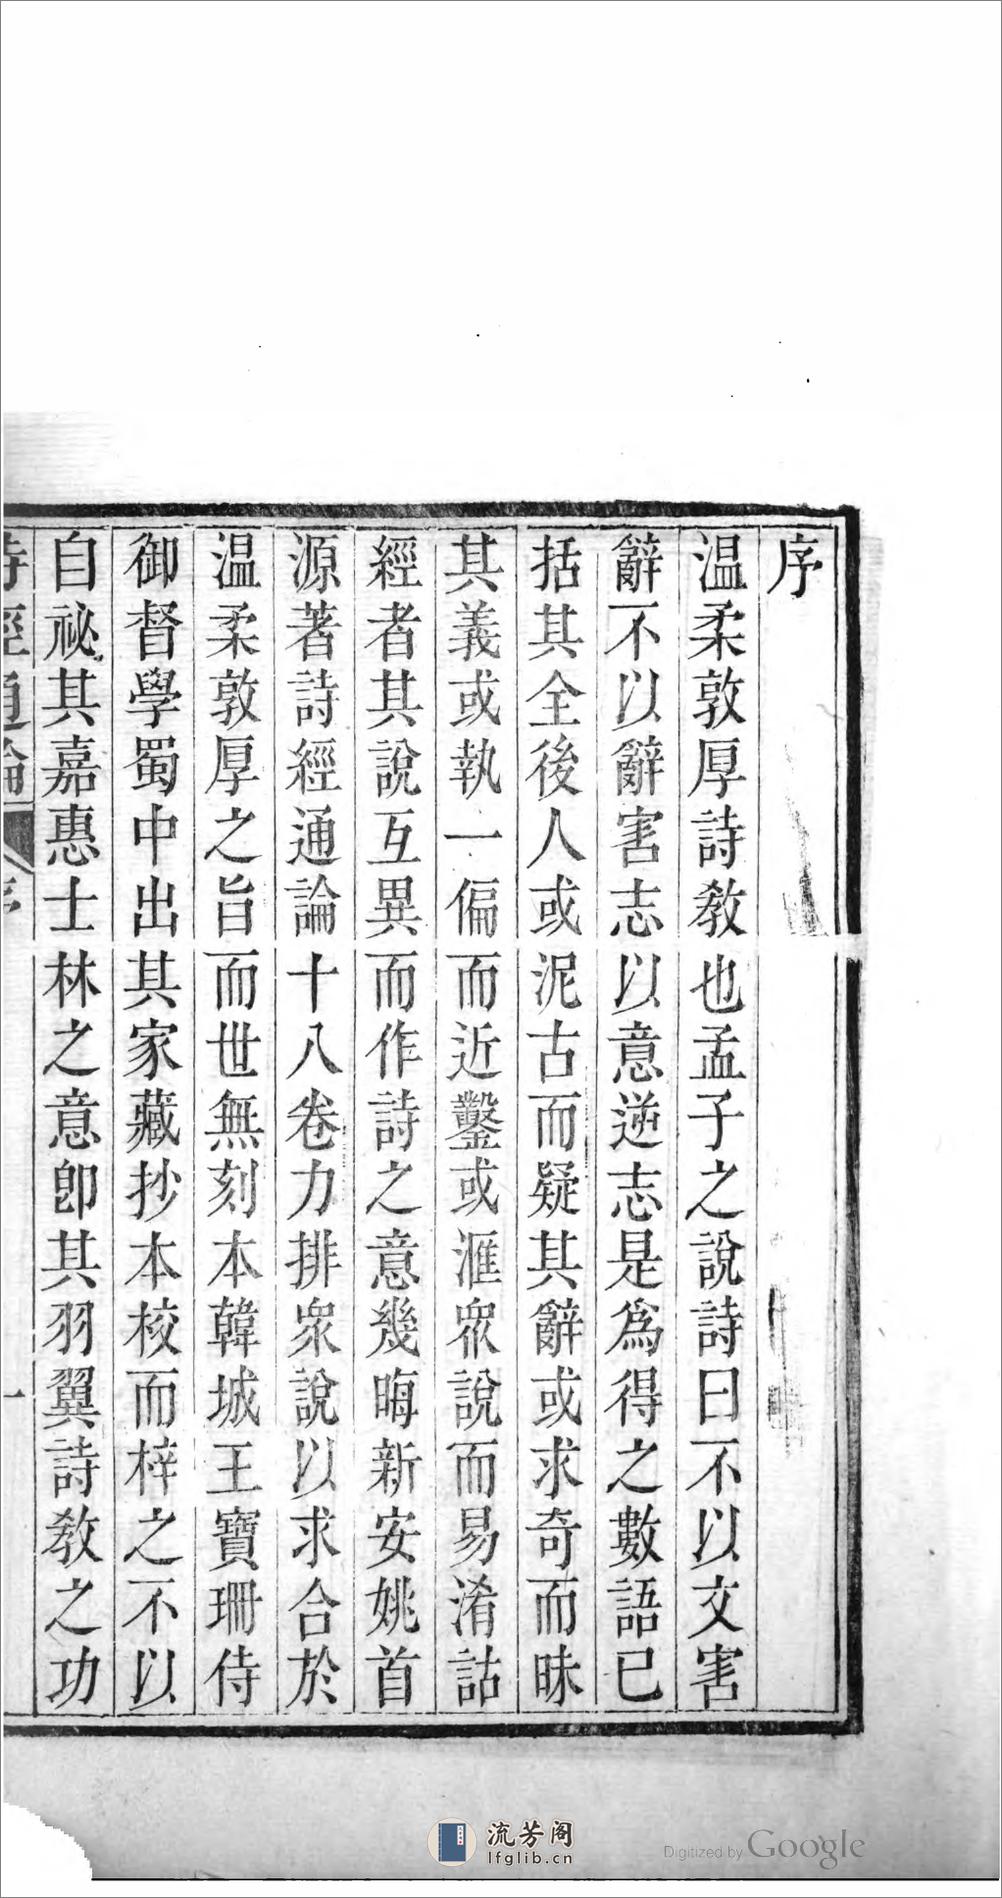 序
温柔敦厚詩敎也孟子之說詩曰不以文害
辭不以辭害志以意逆志是爲得之數語已
括其全後人或泥古而疑其辭或求奇而昧
其義或執一偏而近鑿或滙衆說而易淆詁
經者其說互異而作詩之意幾晦新安姚首
源著詩經通論十八卷力排衆說以求合於
温柔敦厚之旨而世無刻本韓城王寶珊侍
御督學蜀中出其家藏抄本校而梓之不以
自祕其嘉惠士林之意卽其羽翼詩敎之功
詩經通論 序 一
流芳阁
lfglib.cn
Digitized by Google